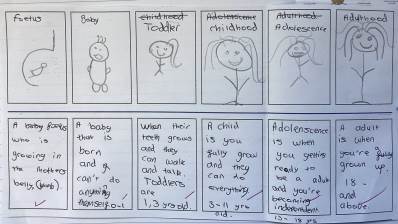 Foetus
Baby
childhood
Toddler
Adolescence
childhood
Adulthood
Adolescence
Adulthood
A baby
who is
growing in
the mothers
belly, (womb).
A baby
that is
born
and
can't do
anything
themself 0-1
When their
teeth grows
and they
can walk
and talk.
Toddlers
are
1,3 yars old.
A child
is you
fully grow
and they
can do
everything
3-11 yars
old.
Adolenscence
is when
you getting
ready to
be a adult
and you're
becoming
independent
A adult
is when
you're fully
grown up.
18 -
and
above.